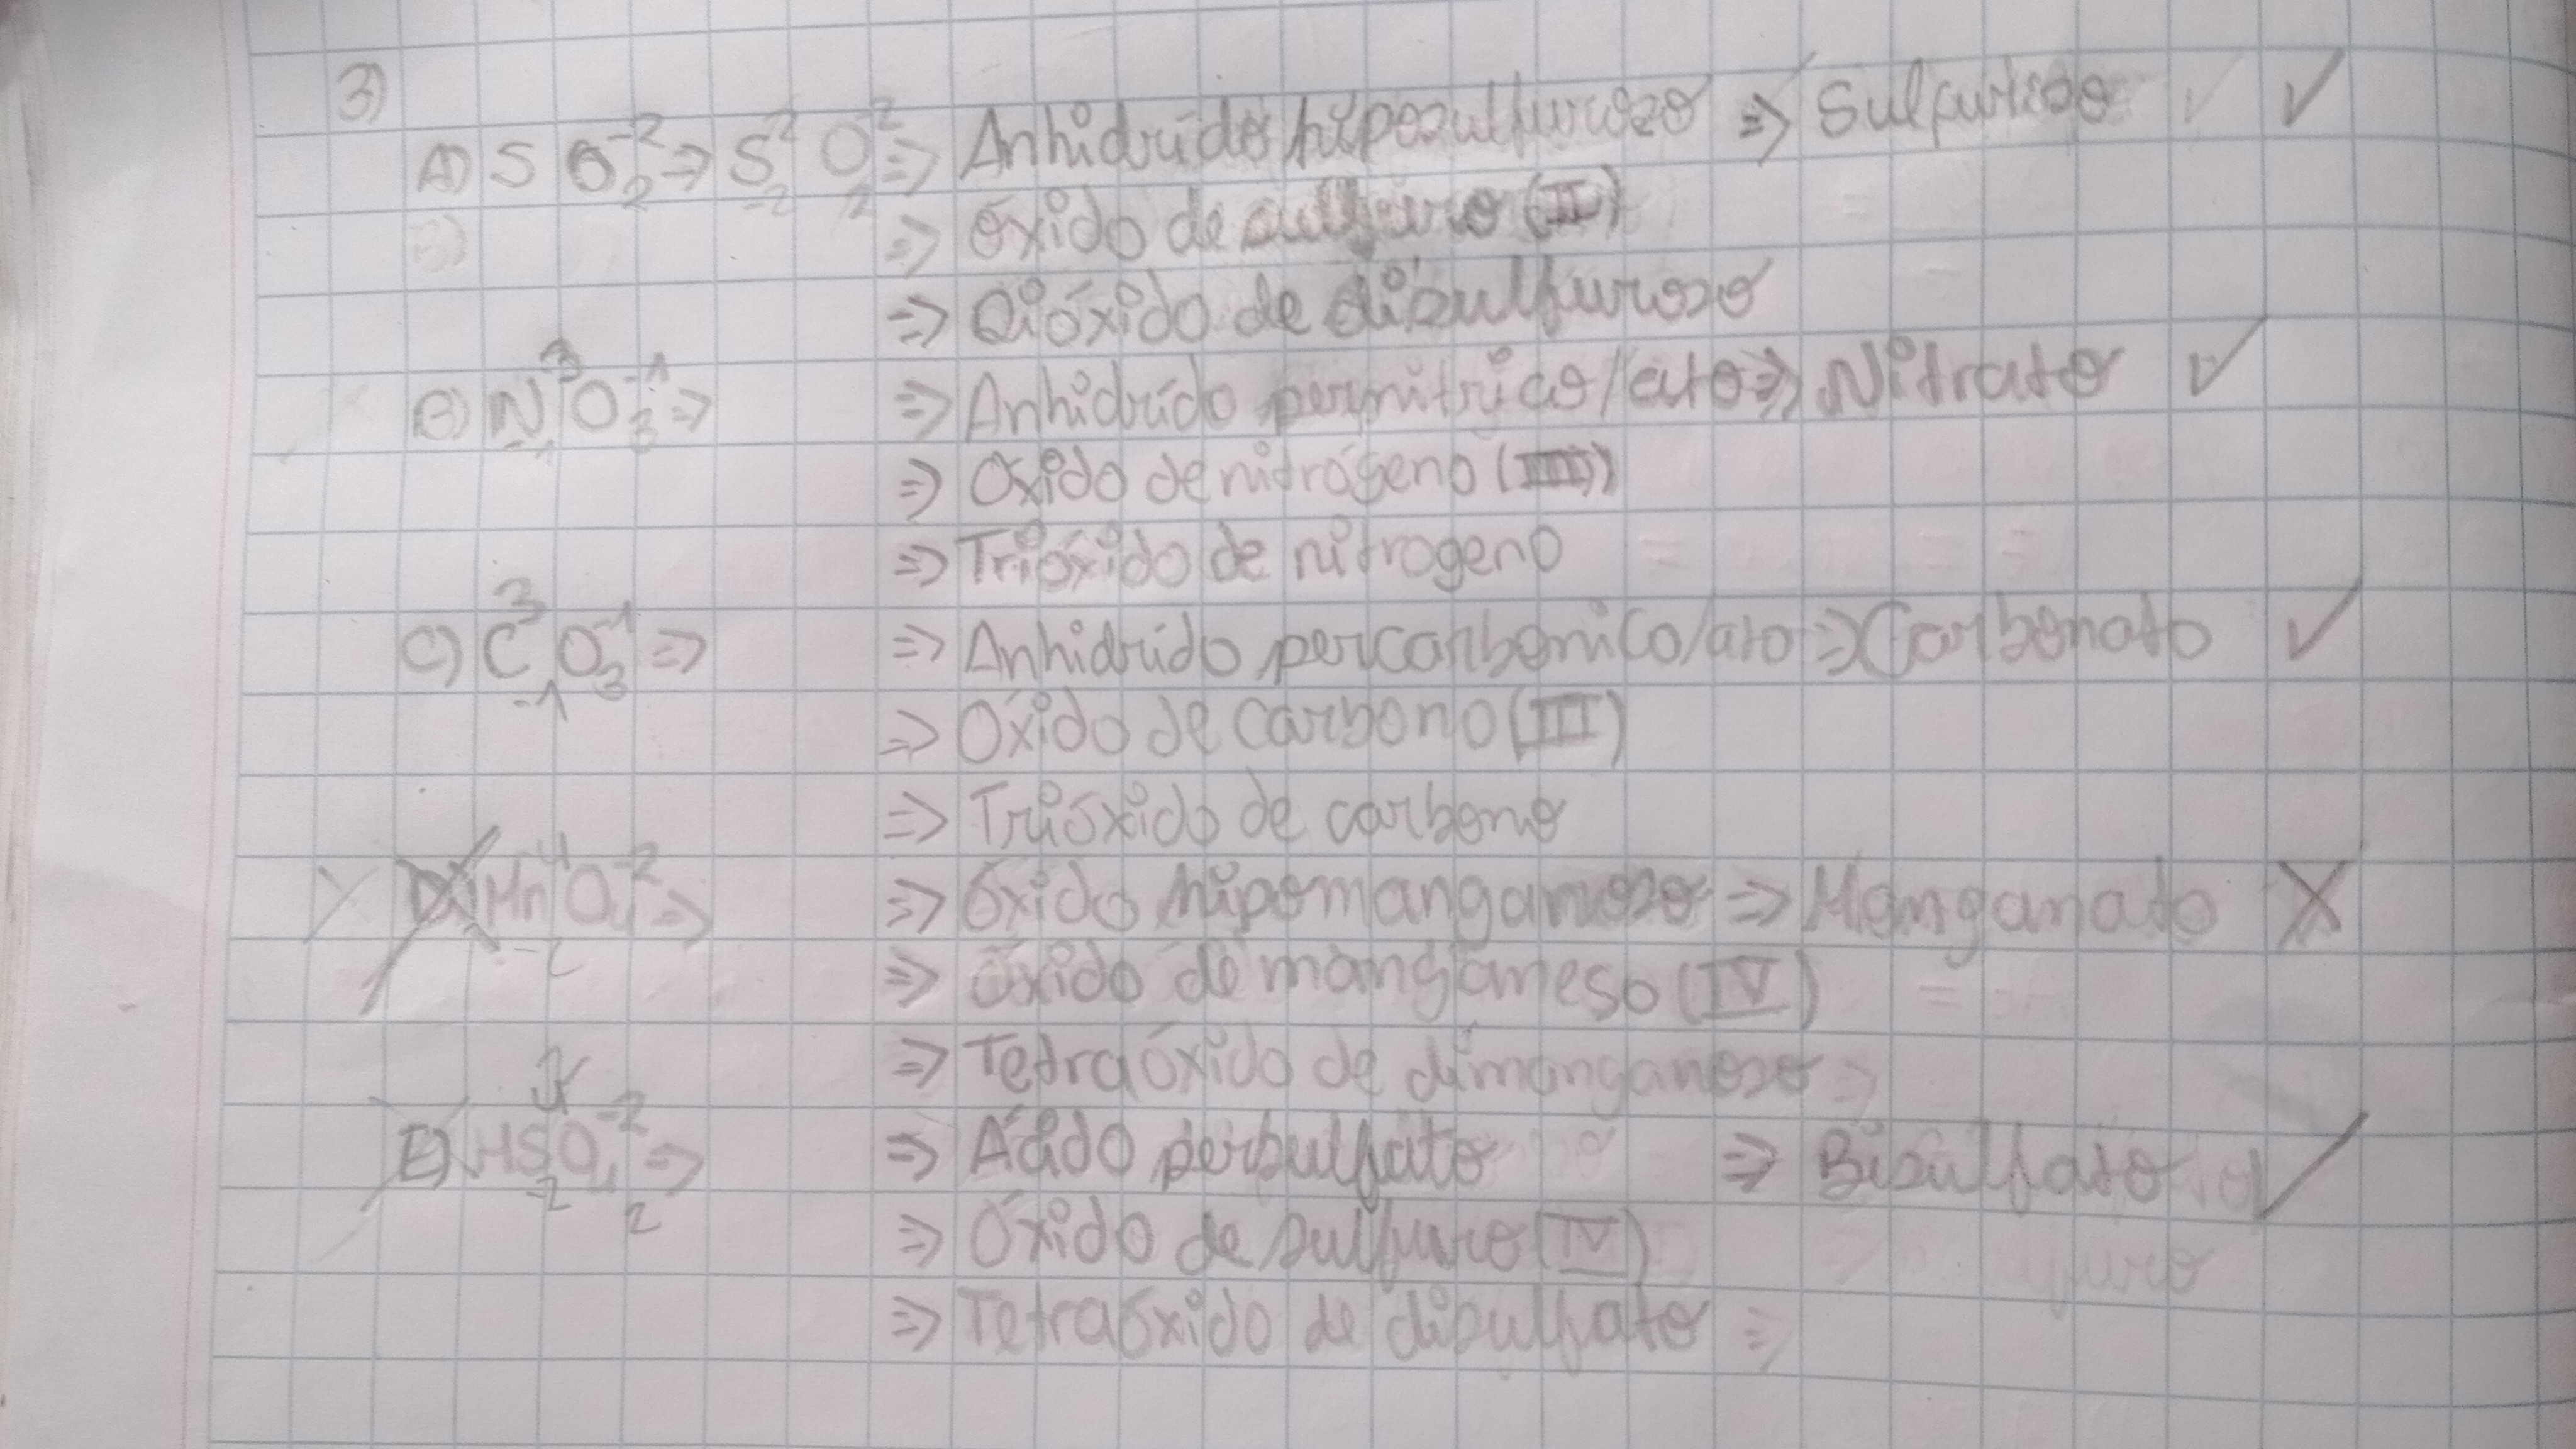 3)
A) S O₂⁻² ⇒ S₋₂² O₂⁻² ⇒ Anhidrído hiposulfuroso ⇒ Sulfuroso ✓
⇒ óxido de sulfuro (II)
⇒ Dióxido de disulfuroso
B) N₋₁³O₃⁻¹ ⇒ ⇒ Anhidrído pernitrico/ato ⇒ Nitrato ✓
⇒ Óxido de nitrógeno (III)
⇒ Trióxido de nitrogeno
C) C₋₁³O₃⁻¹ ⇒ ⇒ Anhidrído percarbonico/ato ⇒ Carbonato ✓
⇒ Óxido de carbono (III)
⇒ Trióxido de carbono
D) Mn₋₂⁴O₄⁻² ⇒ ⇒ óxido hipomanganoso ⇒ Manganato X
⇒ óxido de manganeso (IV)
⇒ Tetraóxido de dimanganoso
E) HSO₄⁻² ⇒ ⇒ Ácido persulfato ⇒ Bisulfato ✓
⇒ Óxido de sulfuro (IV)
⇒ Tetraóxido de disulfato ⇒